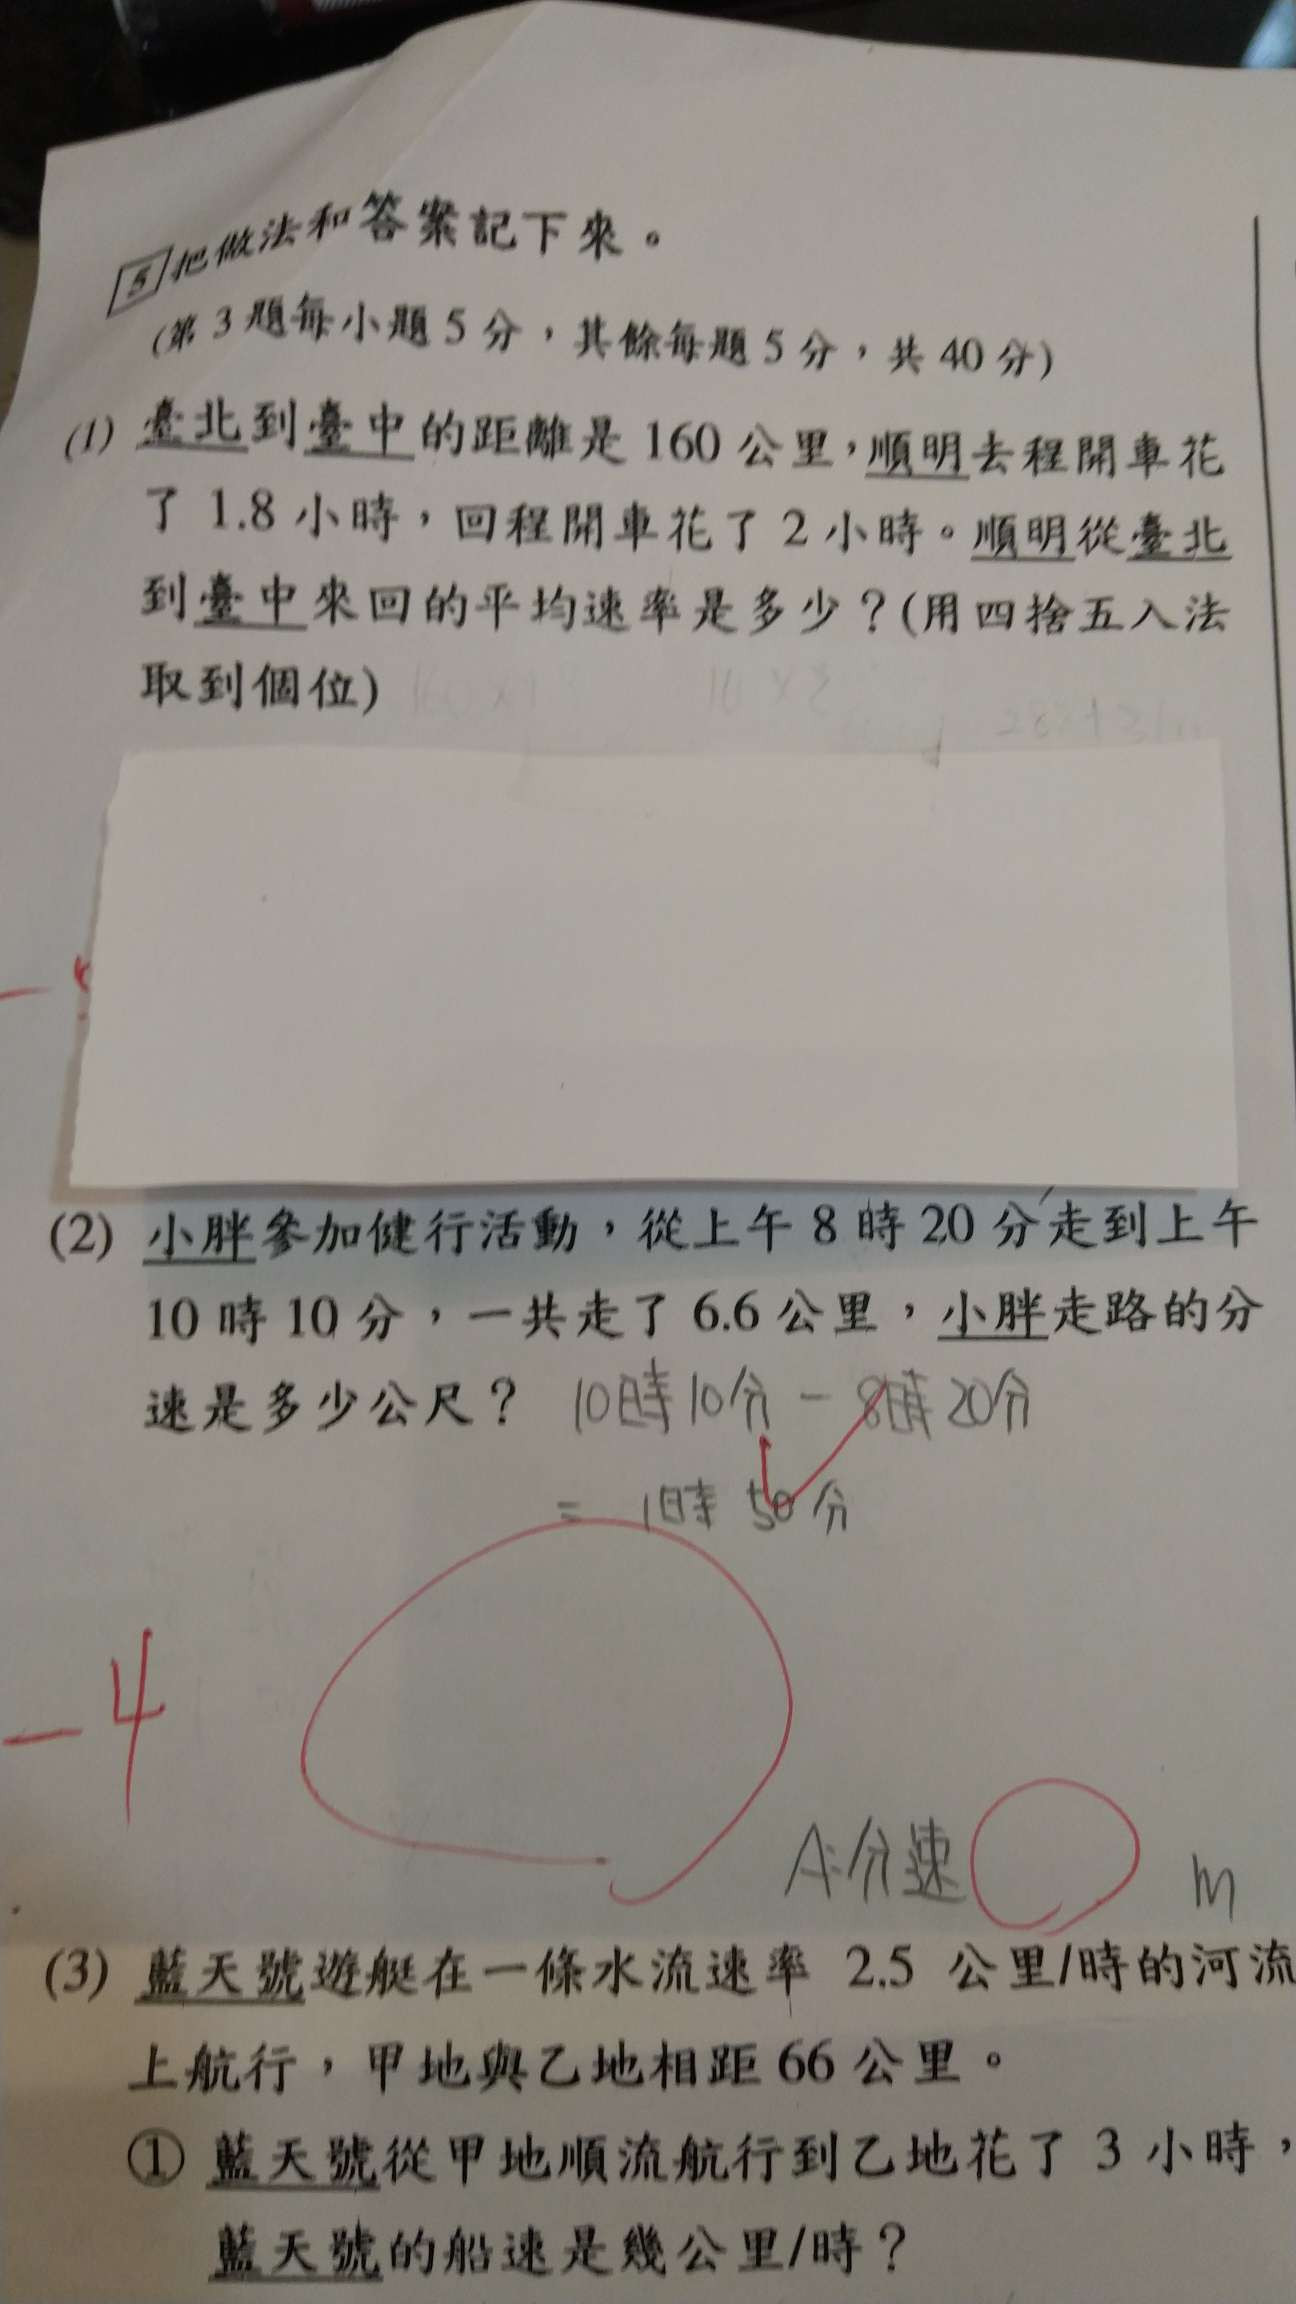 5 把做法和答案記下來。
(第3題每小題5分，其餘每題5分，共40分)
(1) 臺北到臺中的距離是160公里，順明去程開車花
了1.8小時，回程開車花了2小時。順明從臺北
到臺中來回的平均速率是多少？(用四捨五入法
取到個位)
(2) 小胖參加健行活動，從上午8時20分走到上午
10時10分，一共走了6.6公里，小胖走路的分
速是多少公尺？ 10時10分－8時20分
= 1時50分
-4
A:分速 m
(3) 藍天號遊艇在一條水流速率 2.5 公里/時的河流
上航行，甲地與乙地相距66公里。
① 藍天號從甲地順流航行到乙地花了3小時，
藍天號的船速是幾公里/時？